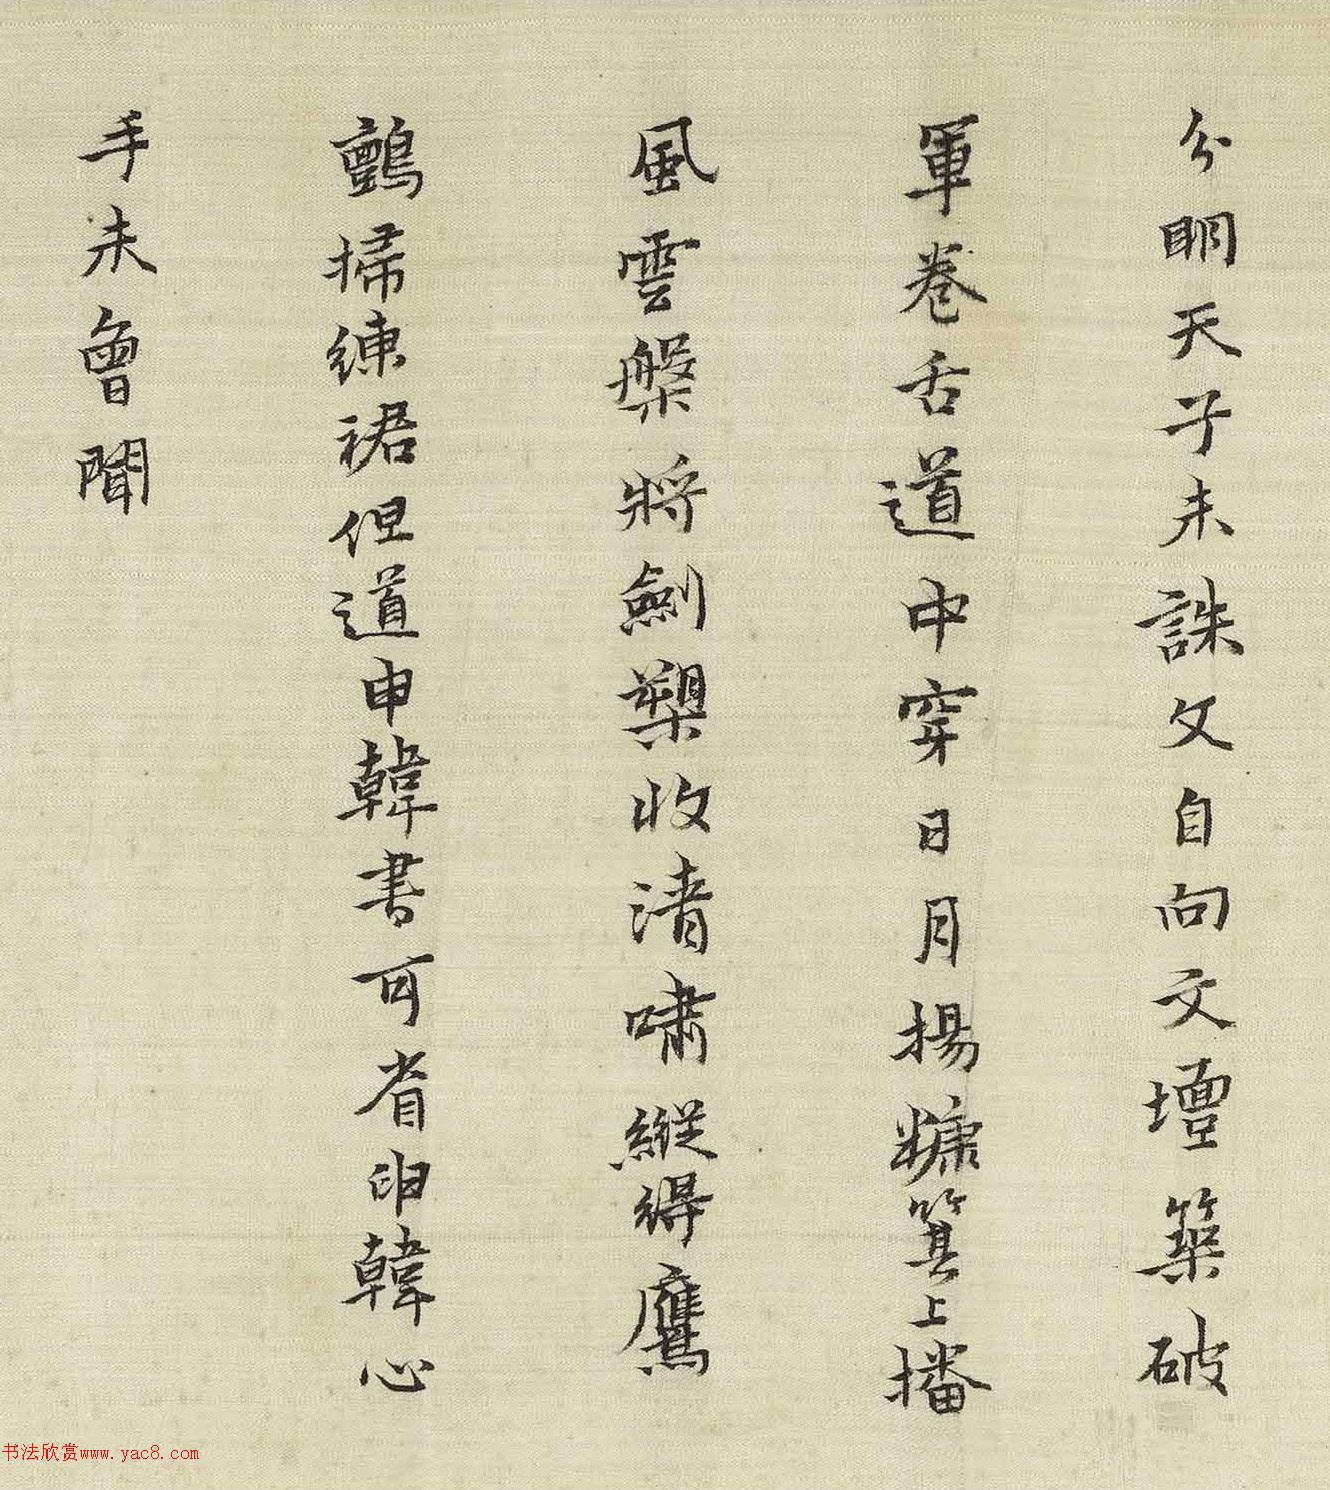 分明天子未誅文自向文壇築破
軍卷舌道中穿日月揚糠箕上播
風雲槃將劍槊收清嘯縱得鷹
鸇掃練裙但道申韓書可省申韓心
手未曾聞
书法欣赏www.yac8.com